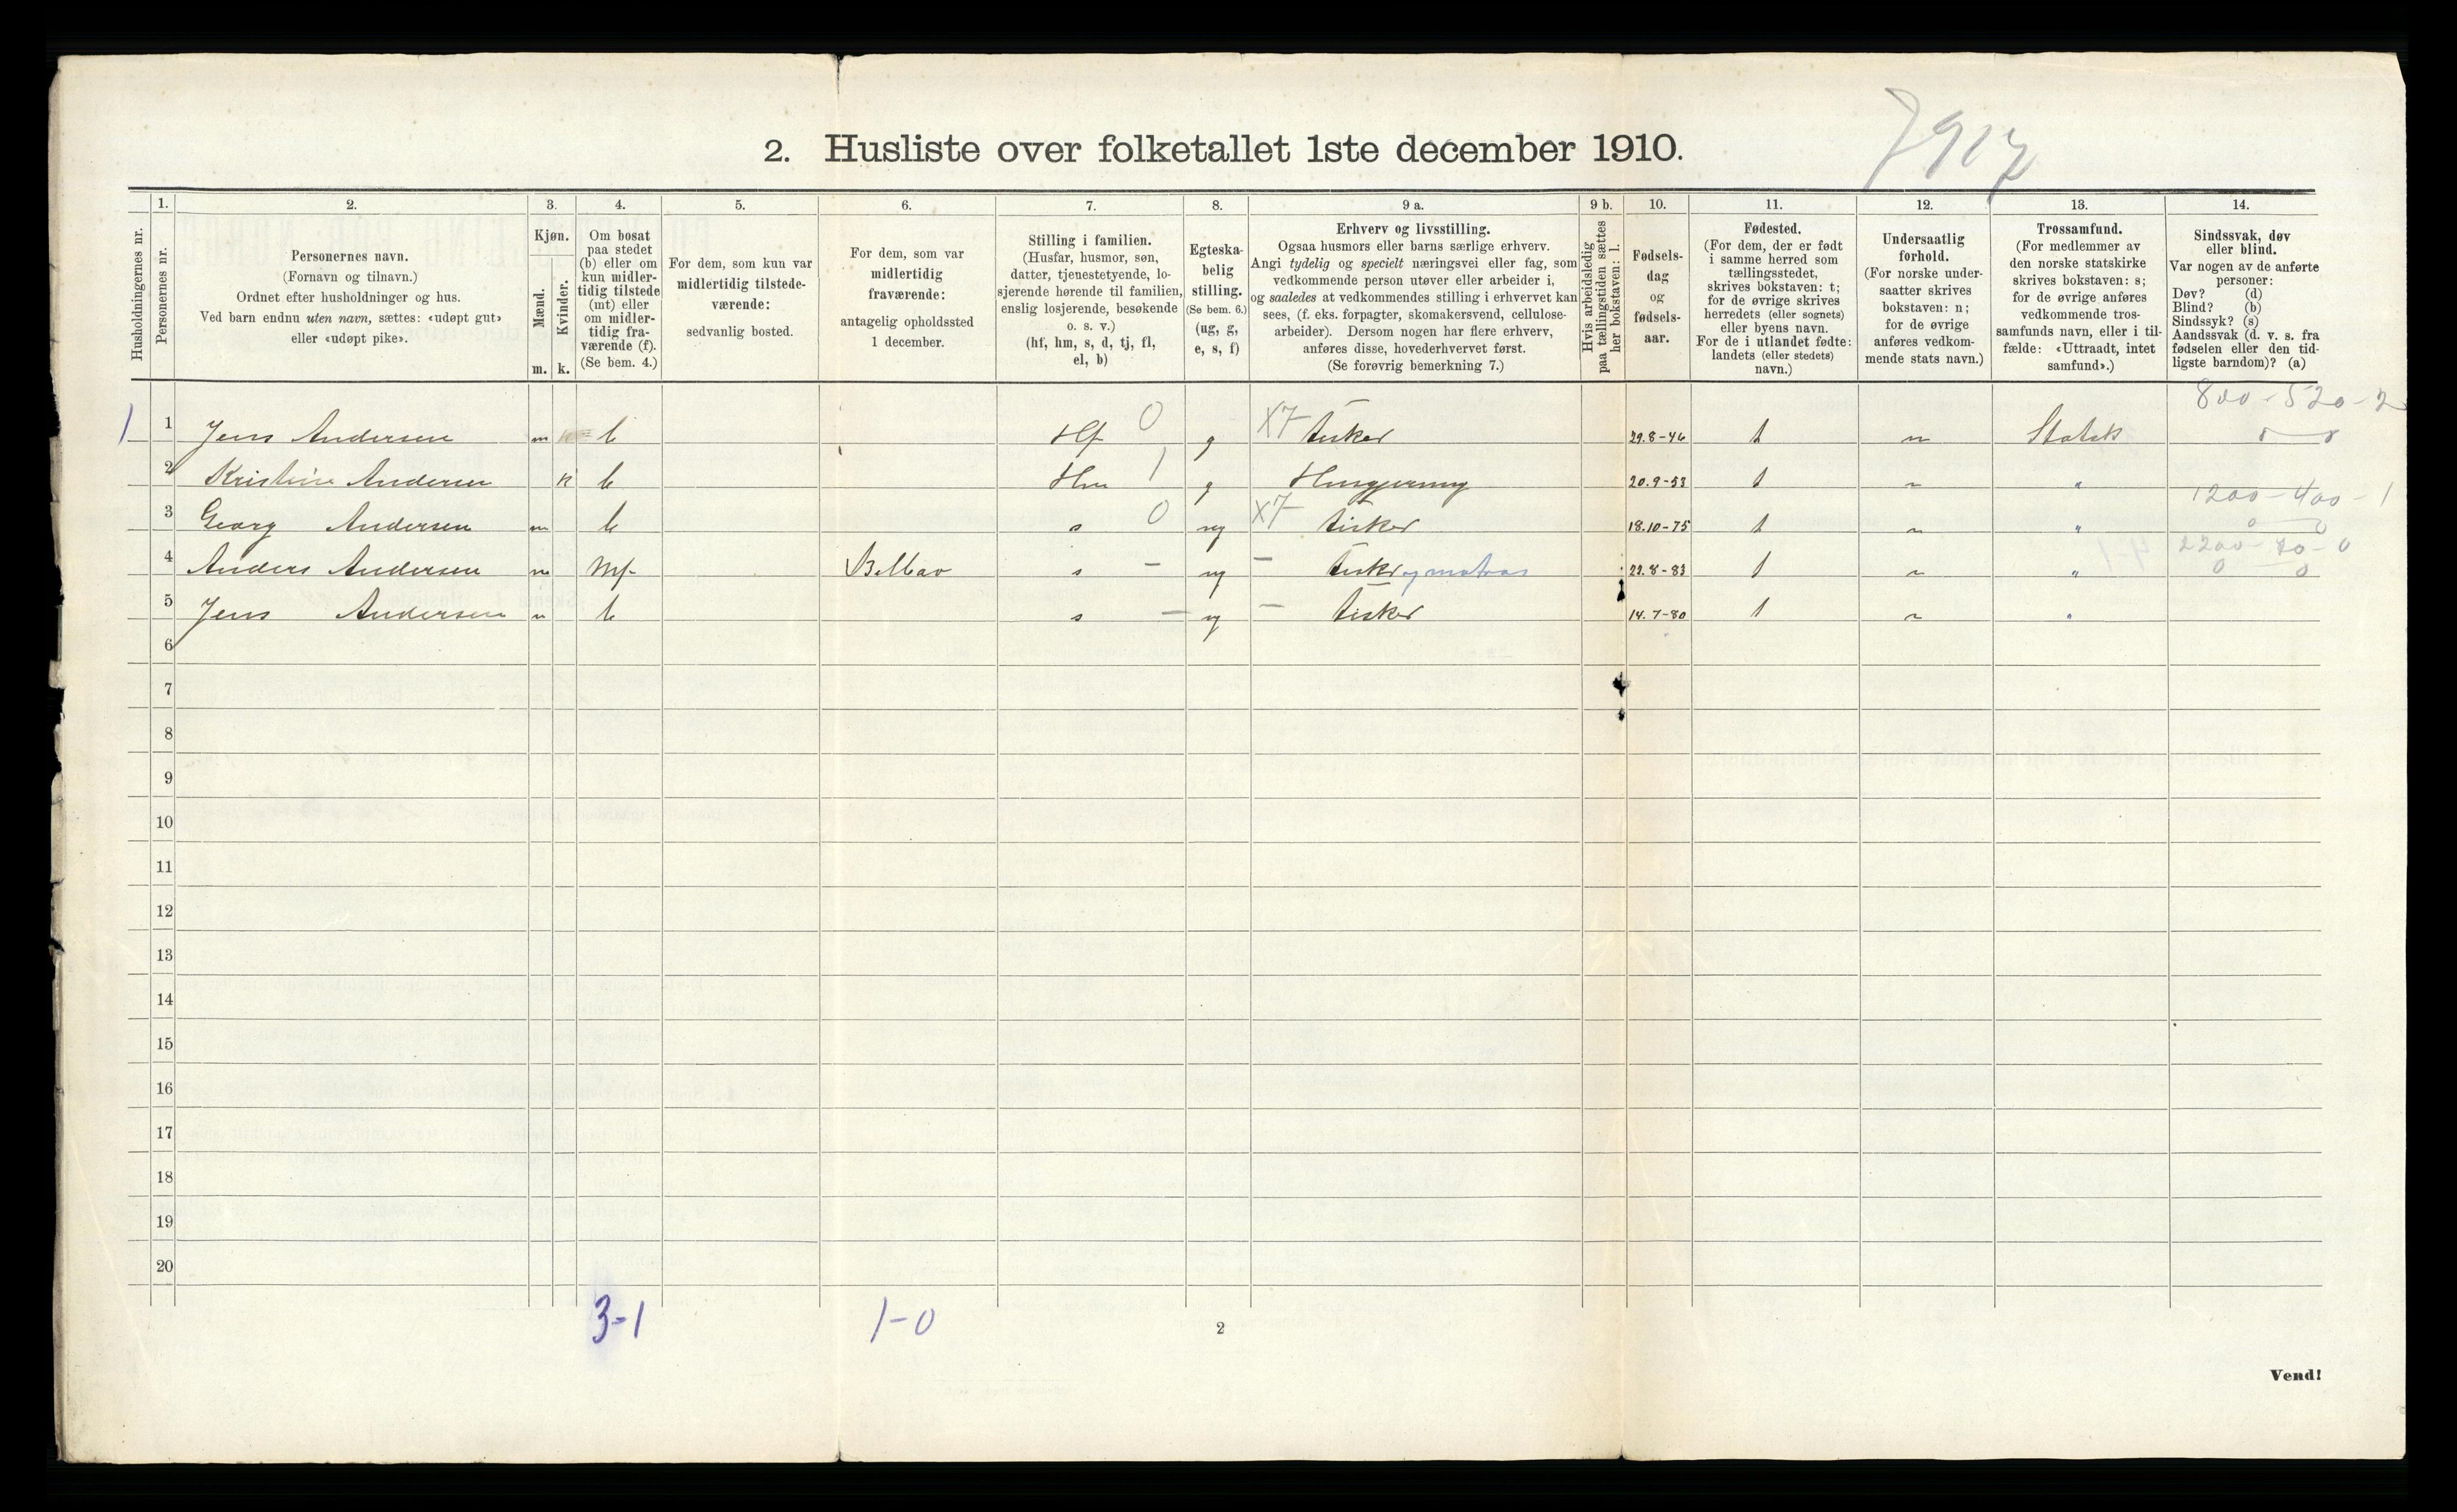 2. Husliste over folketallet 1ste december 1910.
7917
Husholdningernes nr.
1.
Personernes nr.
2.
Personernes navn.
(Fornavn og tilnavn.)
Ordnet efter husholdninger og hus.
Ved barn endnu uten navn, sættes: «udøpt gut»
eller «udøpt pike».
3.
Kjøn.
Mænd.
Kvinder.
m. k.
4.
Om bosat
paa stedet
(b) eller om
kun midler-
tidig tilstede
(mt) eller
om midler-
tidig fra-
værende (f).
(Se bem. 4.)
5.
For dem, som kun var
midlertidig tilstede-
værende:
sedvanlig bosted.
6.
For dem, som var
midlertidig
fraværende:
antagelig opholdssted
1 december.
7.
Stilling i familien.
(Husfar, husmor, søn,
datter, tjenestetyende, lo-
sjerende hørende til familien,
enslig losjerende, besøkende
o. s. v.)
(hf, hm, s, d, tj, fl,
el, b)
8.
Egteska-
belig
stilling.
(Se bem. 6.)
(ug, g,
e, s, f)
9 a.
Erhverv og livsstilling.
Ogsaa husmors eller barns særlige erhverv.
Angi tydelig og specielt næringsvei eller fag, som
vedkommende person utøver eller arbeider i,
og saaledes at vedkommendes stilling i erhvervet kan
sees, (f. eks. forpagter, skomakersvend, cellulose-
arbeider). Dersom nogen har flere erhverv,
anføres disse, hovederhvervet først.
(Se forøvrig bemerkning 7.)
9 b.
Hvis arbeidsledig
paa tællingstiden sættes
her bokstaven: l.
10.
Fødsels-
dag
og
fødsels-
aar.
11.
Fødested.
(For dem, der er født
i samme herred som
tællingsstedet,
skrives bokstaven: t;
for de øvrige skrives
herredets (eller sognets)
eller byens navn.
For de i utlandet fødte:
landets (eller stedets)
navn.)
12.
Undersaatlig
forhold.
(For norske under-
saatter skrives
bokstaven: n;
for de øvrige
anføres vedkom-
mende stats navn.)
13.
Trossamfund.
(For medlemmer av
den norske statskirke
skrives bokstaven: s;
for de øvrige anføres
vedkommende tros-
samfunds navn, eller i til-
fælde: «Uttraadt, intet
samfund».)
14.
Sindssvak, døv
eller blind.
Var nogen av de anførte
personer:
Døv? (d)
Blind? (b)
Sindssyk? (s)
Aandssvak (d. v. s. fra
fødselen eller den tid-
ligste barndom)? (a)
800-520-2
1 1 Jens Andersen m b Hf 0 g X7 fisker 29.8-46 t n Statsk
2 Kristine Andersen k b Hm 1 g Husgjerning 20.9-53 t n "
1200-400-1
3 Georg Andersen m b s 0 ug X7 fisker 18.10-75 t n " 0 0
2200-70-0
4 Anders Andersen m Mf s - ug - fisker og matros 22.8-83 t n " 0 0
5 Jens Andersen m b s - ug - fisker 14.7-80 t n "
6
7
8
9
10
11
12
13
14
15
16
17
18
19
20
3-1 1-0
2
Vend!